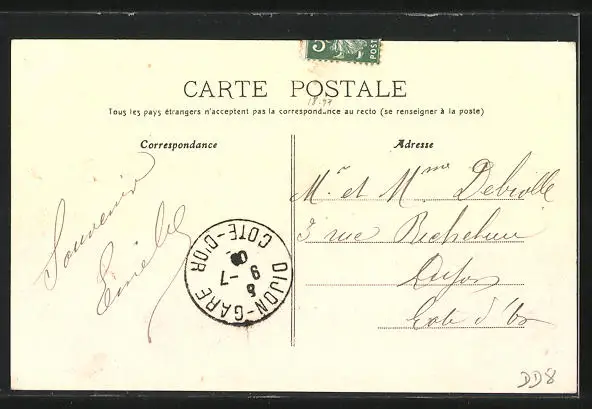 5
POST
CARTE POSTALE
18-97
Tous les pays étrangers n'acceptent pas la correspondance au recto (se renseigner à la poste)
Correspondance
Adresse
Souvenir
Mr et Mme
3 rue Richelieu
Dijon
Cote d'Or
DIJON-GARE
COTE-D'OR
8
9 -7
DD8